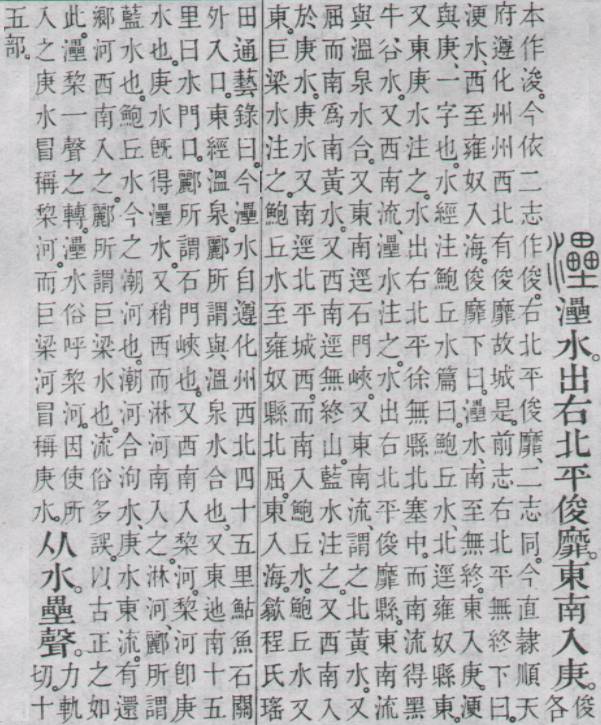 灅 灅水。出右北平俊靡。東南入庚。俊各
本作浚。今依二志作俊。右北平俊靡、二志同。今直隸順天
府遵化州州西北有俊靡故城是。前志右北平無終下曰。
浭水、西至雍奴入海。俊靡下曰。灅水、南至無終。東入庚。浭
與庚、一字也。水經注鮑丘水篇曰。鮑丘水、北逕雍奴縣東。
又東庚水注之。水出右北平徐無縣北塞中。而南流得黑
牛谷水。又西南流、灅水注之。水出右北平俊靡縣。東南流
與溫泉水合。又東南逕石門峽。又東南流、謂之北黃水。又
屈而南爲南黃水。又西南逕無終山。藍水注之。又西南入
於庚水。庚水又南逕北平城西。而南入鮑丘水。鮑丘水又
東。巨梁水注之。鮑丘水至雍奴縣北屈。東入海。歙程氏瑤
田通藝錄曰。今灅水自遵化州西北四十五里鮎魚石關
外入口。東經溫泉。酈所謂與溫泉水合也。又東迆南十五
里曰水門口。酈所謂石門峽也。又西南入棃河。棃河卽庚
水也。庚水旣得灅水。又稍西而淋河南入之。淋河、酈所謂
藍水也。鮑丘水今之潮河也。潮河合泃水、庚水東流。有還
鄉河西南入之。酈所謂巨梁水也。流俗多誤。以古正之如
此。灅棃一聲之轉。灅水俗呼棃河。因使所
入之庚水冒稱棃河。而巨梁河冒稱庚水。从水。壘聲。力軌切。十
五部。